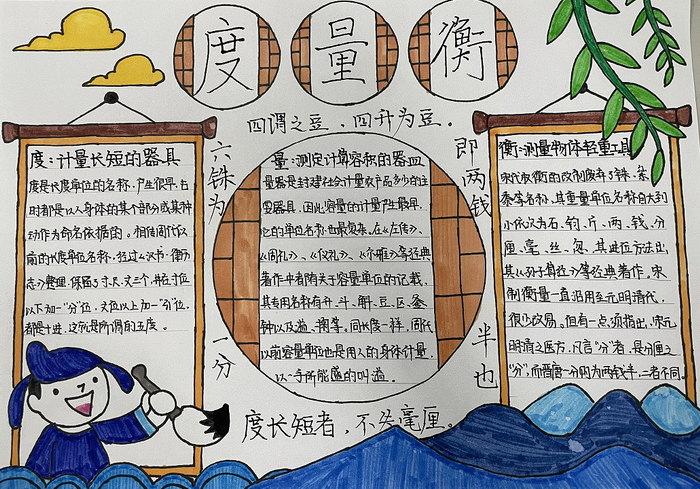 度 量 衡
四渭之豆,四升为豆。
度:计量长短的器具
度是长度单位的名称,产生很早,古
时都是以人身体的某个部分或某种
动作为命名依据的。相传周代以
前的长度单位名称,经过《汉书·律历
志》整理,保留了寸、尺、丈三个,并在寸位
以下加一“分”位,丈位以上加一“引”位,
都是十进,这就是所谓的五度。
六铢为
一分
量:测定计算容积的器皿
量器是封建社会计量农产品多少的主
要器具,因此容量的计量产生最早,
它的单位名称也最复杂,在《左传》、
《周礼》、《仪礼》、《尔雅》等经典
著作中都有关于容量单位的记载,
其专用名称有升、斗、斛、豆、区、釜、
钟以及溢、掬等。同长度一样,周代
以前容量单位也是用人的身体计量,
以一手所能盛的叫溢。
即两钱
半也
衡:测量物体轻重工具
宋代权衡的改制废弃了铢、絫、
黍等名称,其重量单位名称自大到
小依次为石、钧、斤、两、钱、分
厘、毫、丝、忽。其进位方法出
其《孙子算经》等经典著作。宋
制衡量一直沿用至元明清代,
很少改易。但有一点须指出,宋元
明清之医方,凡言“分”者,是分厘之
“分”,而晋唐一分则为两钱半,二者不同。
度长短者,不失毫厘。